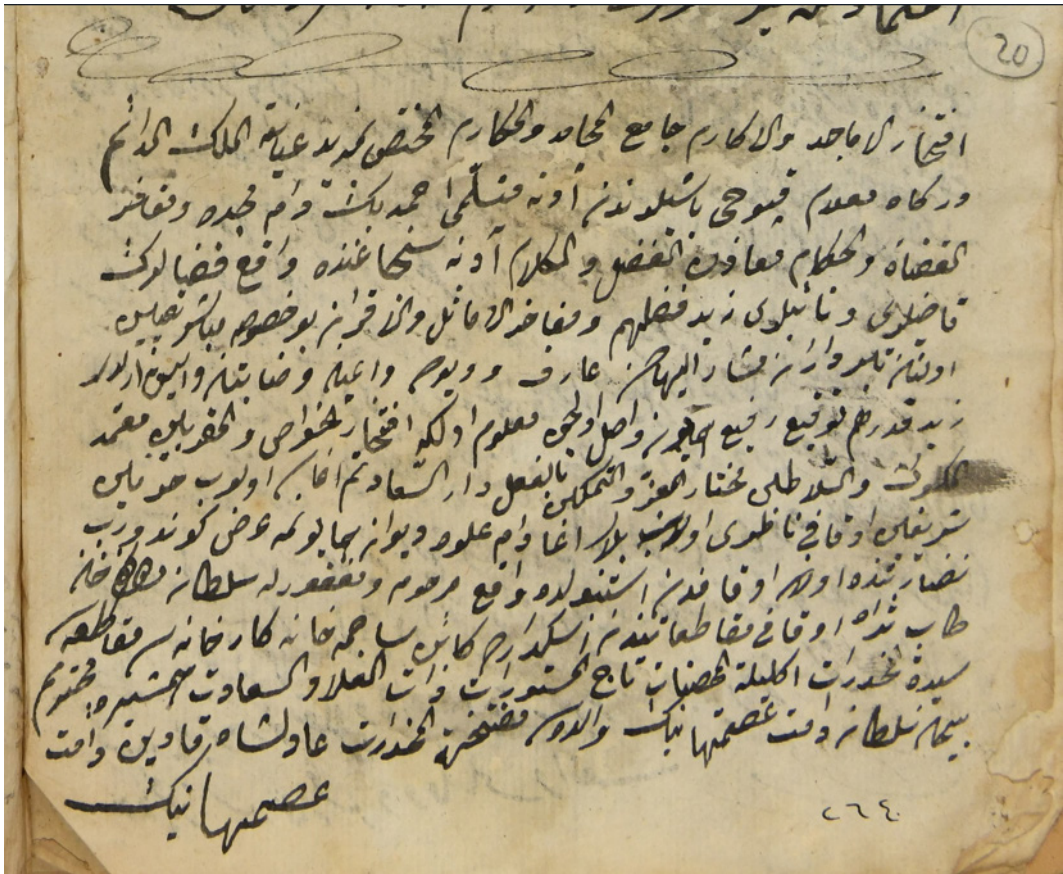 20
افتخار الاماجد والاكارم جامع المحامد والمكارم المختص بمزيد عناية الملك الدائم
دركاه معلام قپوجى باشلرندن آدنه متسلمى احمد بك دام مجده ومفاخر
القضاة والحكام معادن الفضل والكلام آدنه سنجاغنده واقع قضالرك
قاضلرى ونائبلرى زيد فضلهم ومفاخر الاماثل والاقران بو خصوصه مباشر تعيين
اولنان
زيد قدرهم توقيع رفيع همايون واصل اوليجق معلوم اولكه افتخار الخواص والمقربين معتمد
الملوك والسلاطين مختار العز والتمكين بالفعل دار السعادتم اغاسى اولوب حرمين
شريفين اوقافى ناظرى اولان بلال اغا دام علوه ديوان همايونمه عرض كوندروب
نظارتنده اولان اوقافدن استنبولده واقع مرحوم ومغفور له سلطان
طاب ثراه اوقافى مقاطعاتندن اسكدارده كائن ساجمه خانه كارخانه سى مقاطعه
سيدة المخدرات اكليلة المحصنات تاج المستورات ذات العلا والسعادات همشيره محترمه م
سلطان دامت عصمتها نك والده سى مفتخرة المخدرات عادلشاه قادين دامت
عصمتها نك
٢٦٤